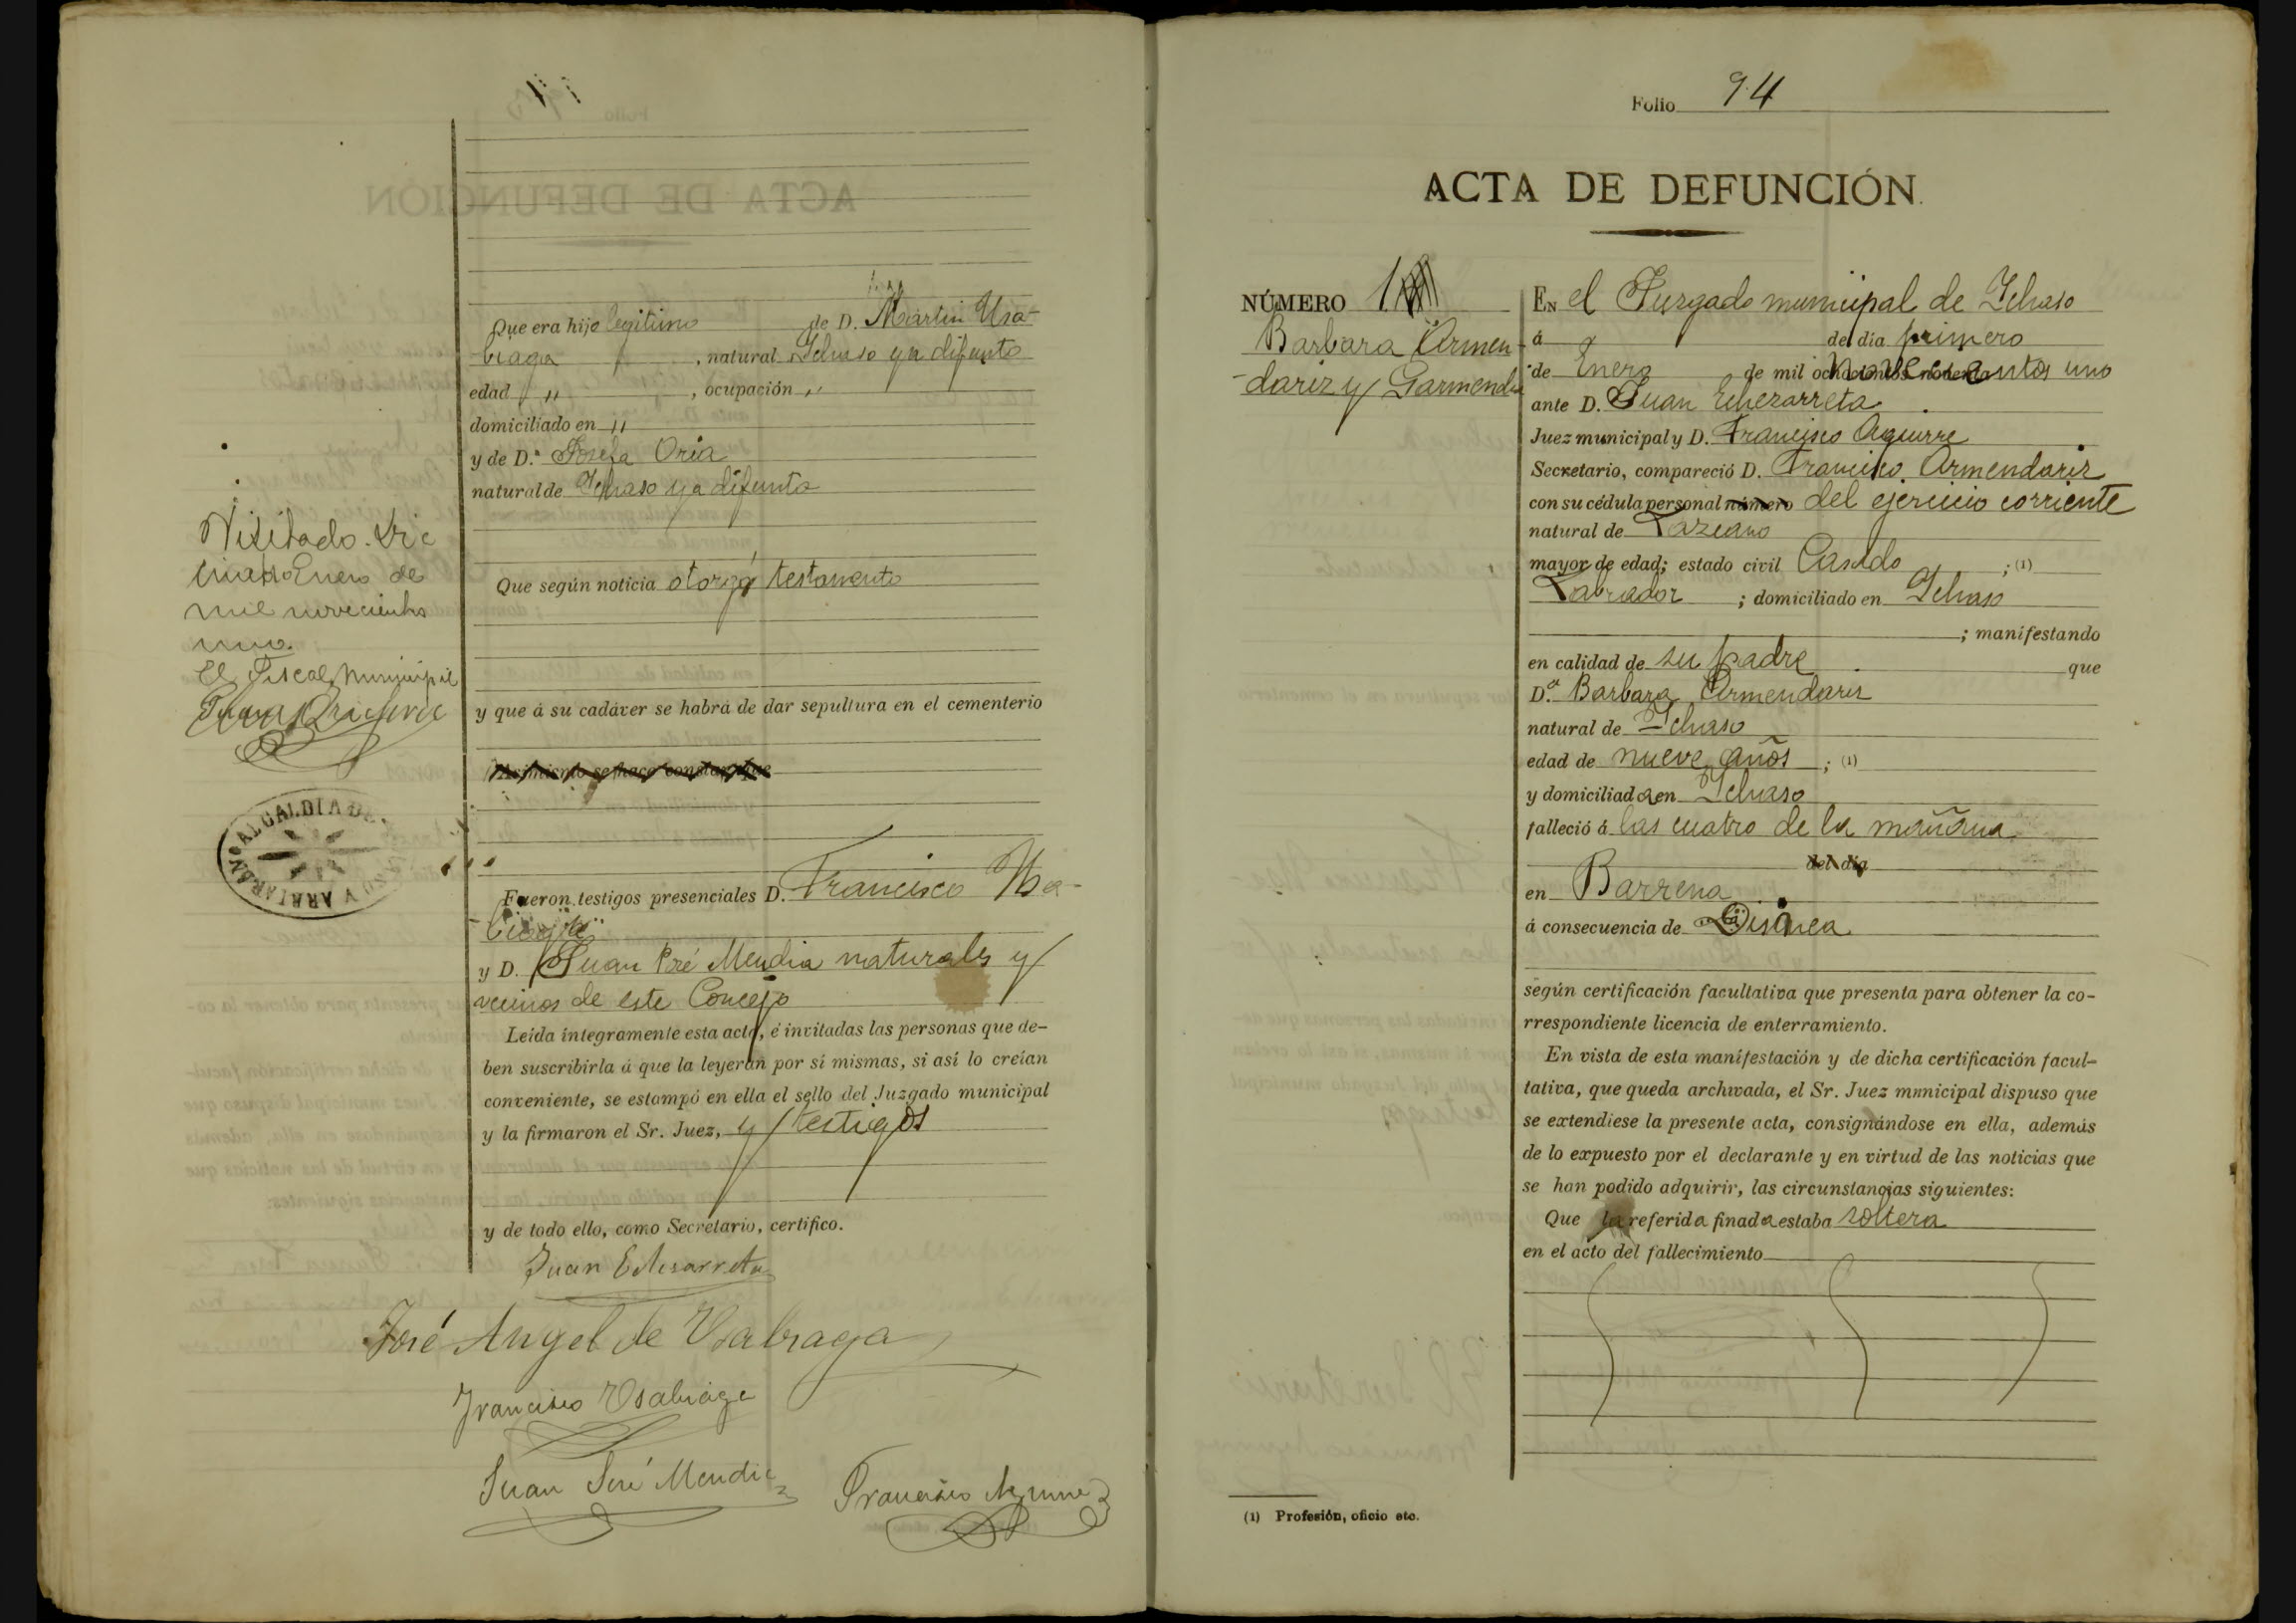 Que era hijo legitimo de D. Martin Usa-
biaga, natural Ichaso ya difunto
edad " , ocupación "
domiciliado en "
y de D.ª Josefa Oria
natural de Ichaso ya difunta
Que según noticia otorgó testamento
y que á su cadáver se habrá de dar sepultura en el cementerio
Fueron testigos presenciales D. Francisco Usa-
biaga
y D. Juan José Mendia naturales y
vecinos de este Concejo
Leída íntegramente esta acta, é invitadas las personas que de-
ben suscribirla á que la leyeran por sí mismas, si así lo creían
conveniente, se estampó en ella el sello del Juzgado municipal
y la firmaron el Sr. Juez, y testigos
y de todo ello, como Secretario, certifico.
Juan Echezarreta
José Angel de Usabiaga
Francisco Usabiaga
Juan José Mendia
Francisco Aguirre
Visitado.
Enero de
mil novecientos
uno.
El Fiscal Municipal
ALCALDIA DE
Y ARRIARAN
Folio 94
ACTA DE DEFUNCIÓN.
NÚMERO 1
Barbara Armen-
dariz y Garmendia
En el Juzgado municipal de Ichaso
á del día primero
de Enero de mil novecientos uno
ante D. Juan Echezarreta
Juez municipal y D. Francisco Aguirre
Secretario, compareció D. Francisco Armendariz
con su cédula personal número del ejercicio corriente
natural de Lazcano
mayor de edad; estado civil Casado ; (1)
Labrador ; domiciliado en Ichaso
; manifestando
en calidad de su padre que
D.ª Barbara Armendariz
natural de Ichaso
edad de nueve años ; (1)
y domiciliada en Ichaso
falleció á las cuatro de la mañana
del día
en Barrena
á consecuencia de Disnea
según certificación facultativa que presenta para obtener la co-
rrespondiente licencia de enterramiento.
En vista de esta manifestación y de dicha certificación facul-
tativa, que queda archivada, el Sr. Juez mnnicipal dispuso que
se extendiese la presente acta, consignándose en ella, además
de lo expuesto por el declarante y en virtud de las noticias que
se han podido adquirir, las circunstancias siguientes:
Que la referida finada estaba soltera
en el acto del fallecimiento
(1) Profesión, oficio etc.